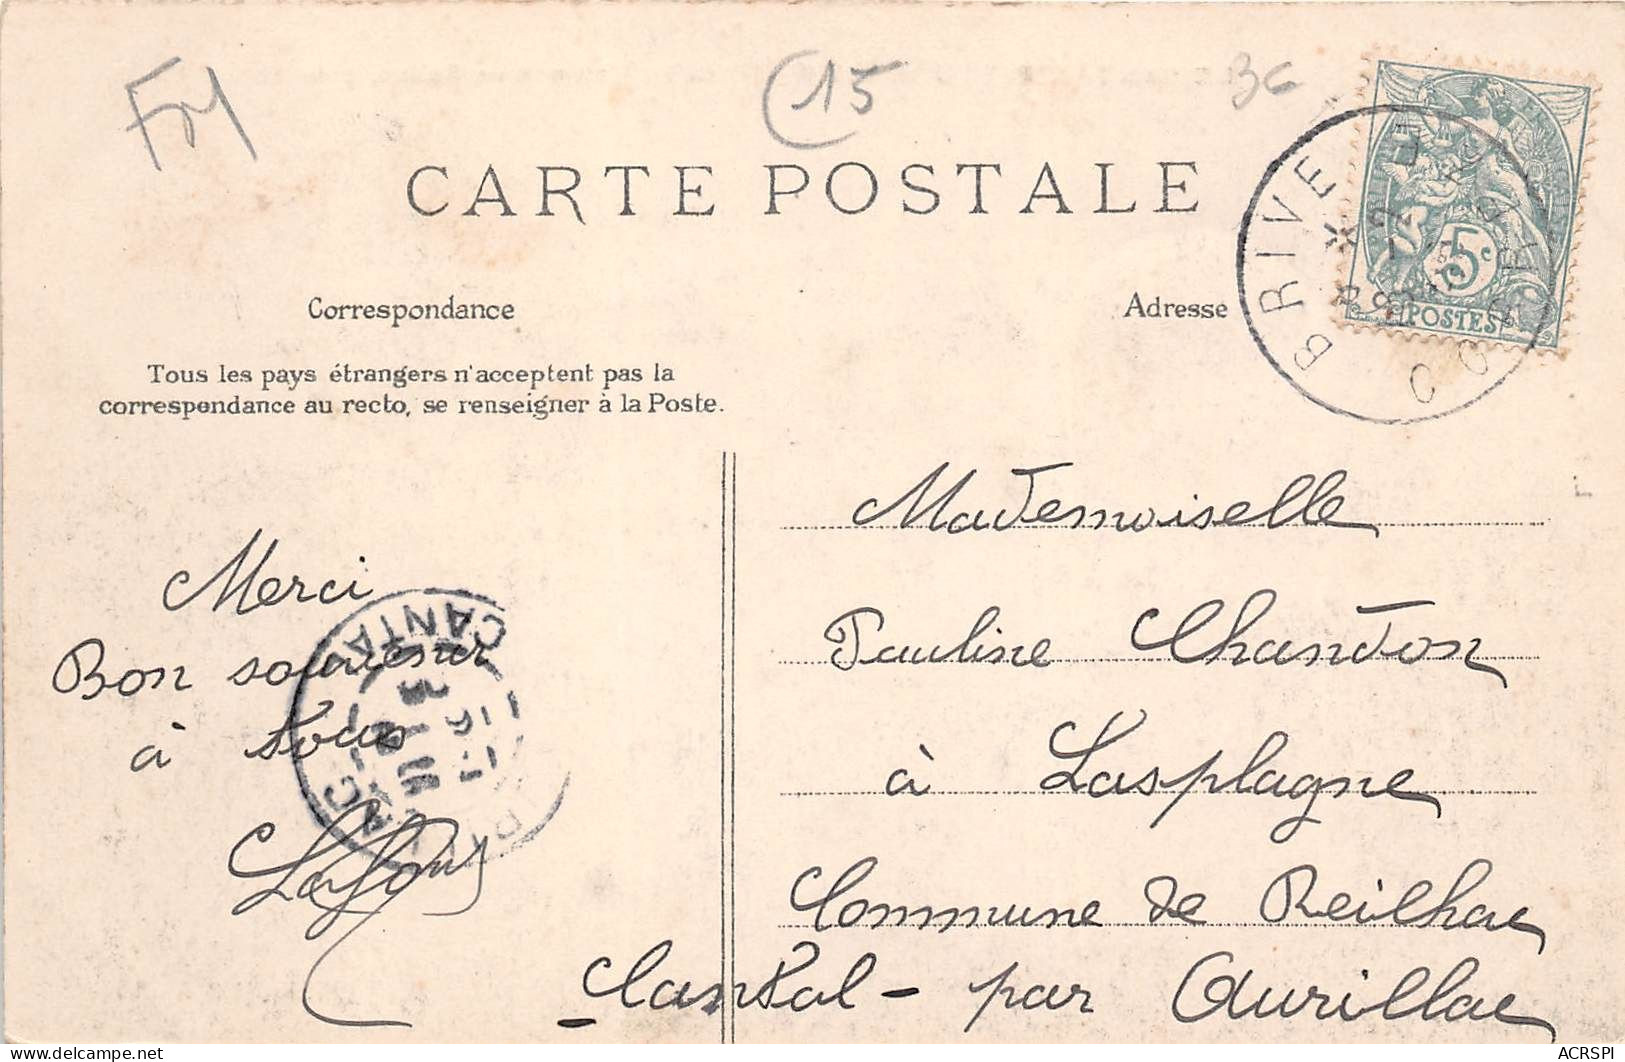 FM
15
36
CARTE POSTALE
Correspondance
Adresse
Tous les pays étrangers n'acceptent pas la
correspondance au recto, se renseigner à la Poste.
BRIVE
CORREZE
5c
POSTES
Merci
Bon souvenir
à tous
Lafon
CANTAL
Mademoiselle
Pauline Chandon
à Lasplagne
Commune de Reilhac
Cantal - par Aurillac
delcampe.net
ACRSPI